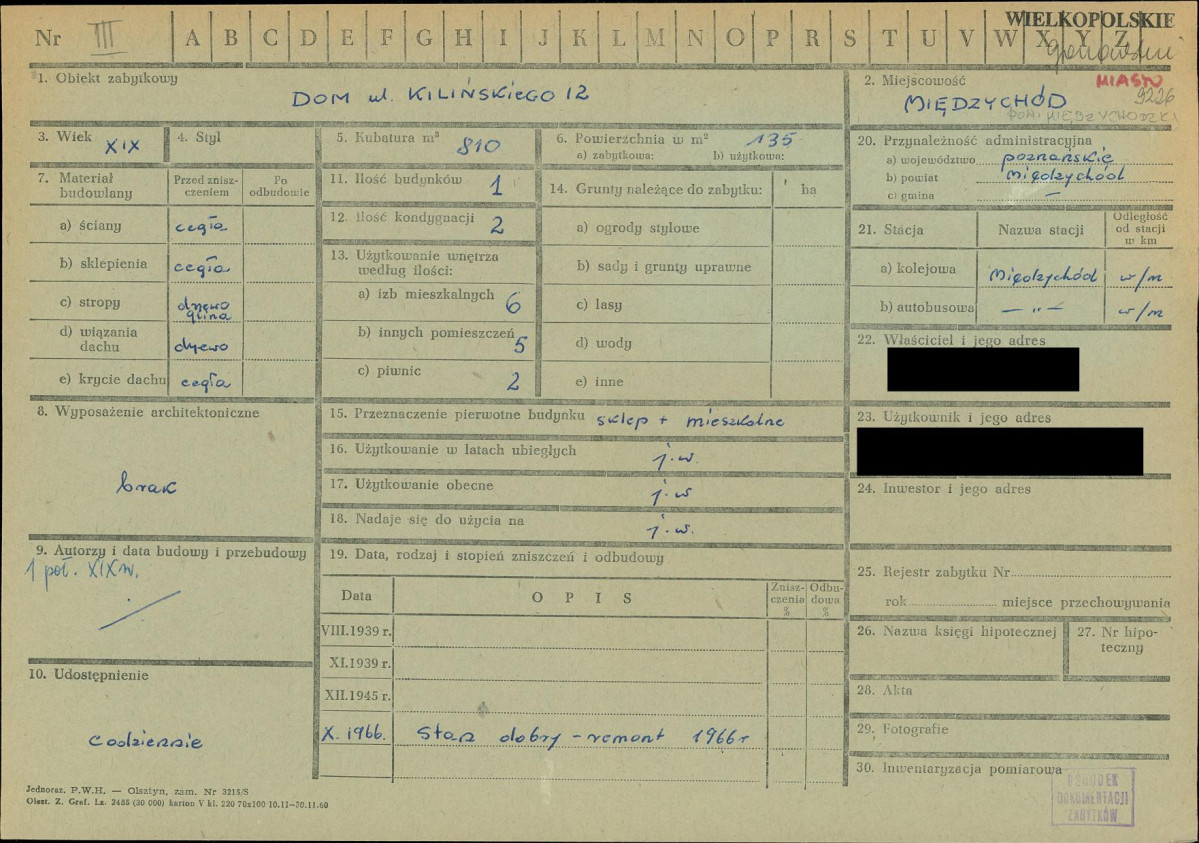 WIELKOPOLSKIE
Nr III A B C D E F G H I J K L M N O P R S T U V W X Y Z
1. Obiekt zabytkowy
DOM ul. KILIŃSKIEGO 12
2. Miejscowość MIASTO
MIĘDZYCHÓD 9226
POW. MIĘDZYCHODZKI
3. Wiek XIX
4. Styl
5. Kubatura m³ 810
6. Powierzchnia w m² 135
a) zabytkowa: b) użytkowa:
7. Materiał budowlany
Przed zniszczeniem
Po odbudowie
a) ściany cegła
b) sklepienia cegła
c) stropy drzewo
glina
d) wiązania dachu drzewo
e) krycie dachu cegła
8. Wyposażenie architektoniczne
brak
9. Autorzy i data budowy i przebudowy
1 poł. XIX w.
10. Udostępnienie
codziennie
11. Ilość budynków 1
12. Ilość kondygnacji 2
13. Użytkowanie wnętrza
według ilości:
a) izb mieszkalnych 6
b) innych pomieszczeń 5
c) piwnic 2
14. Grunty należące do zabytku: ha
a) ogrody stylowe
b) sady i grunty uprawne
c) lasy
d) wody
e) inne
15. Przeznaczenie pierwotne budynku sklep + mieszkalne
16. Użytkowanie w latach ubiegłych j.w.
17. Użytkowanie obecne j.w
18. Nadaje się do użycia na j.w.
19. Data, rodzaj i stopień zniszczeń i odbudowy
Data OPIS Zniszczenia % Odbudowa %
VIII.1939 r.
XI.1939 r.
XII.1945 r.
X.1966. Stan dobry - remont 1966 r
20. Przynależność administracyjna
a) województwo poznańskie
b) powiat Międzychód
c) gmina —
21. Stacja Nazwa stacji Odległość od stacji w km
a) kolejowa Międzychód w/m
b) autobusowa — „ — w/m
22. Właściciel i jego adres
23. Użytkownik i jego adres
24. Inwestor i jego adres
25. Rejestr zabytku Nr
rok miejsce przechowywania
26. Nazwa księgi hipotecznej
27. Nr hipoteczny
28. Akta
29. Fotografie
30. Inwentaryzacja pomiarowa
OŚRODEK
DOKUMENTACJI
ZABYTKÓW
Jednoraz. P.W.H. — Olsztyn, zam. Nr 3215/S
Olszt. Z. Graf. Lz. 2485 (30 000) karton V kl. 220 70x100 10.11—30.11.60